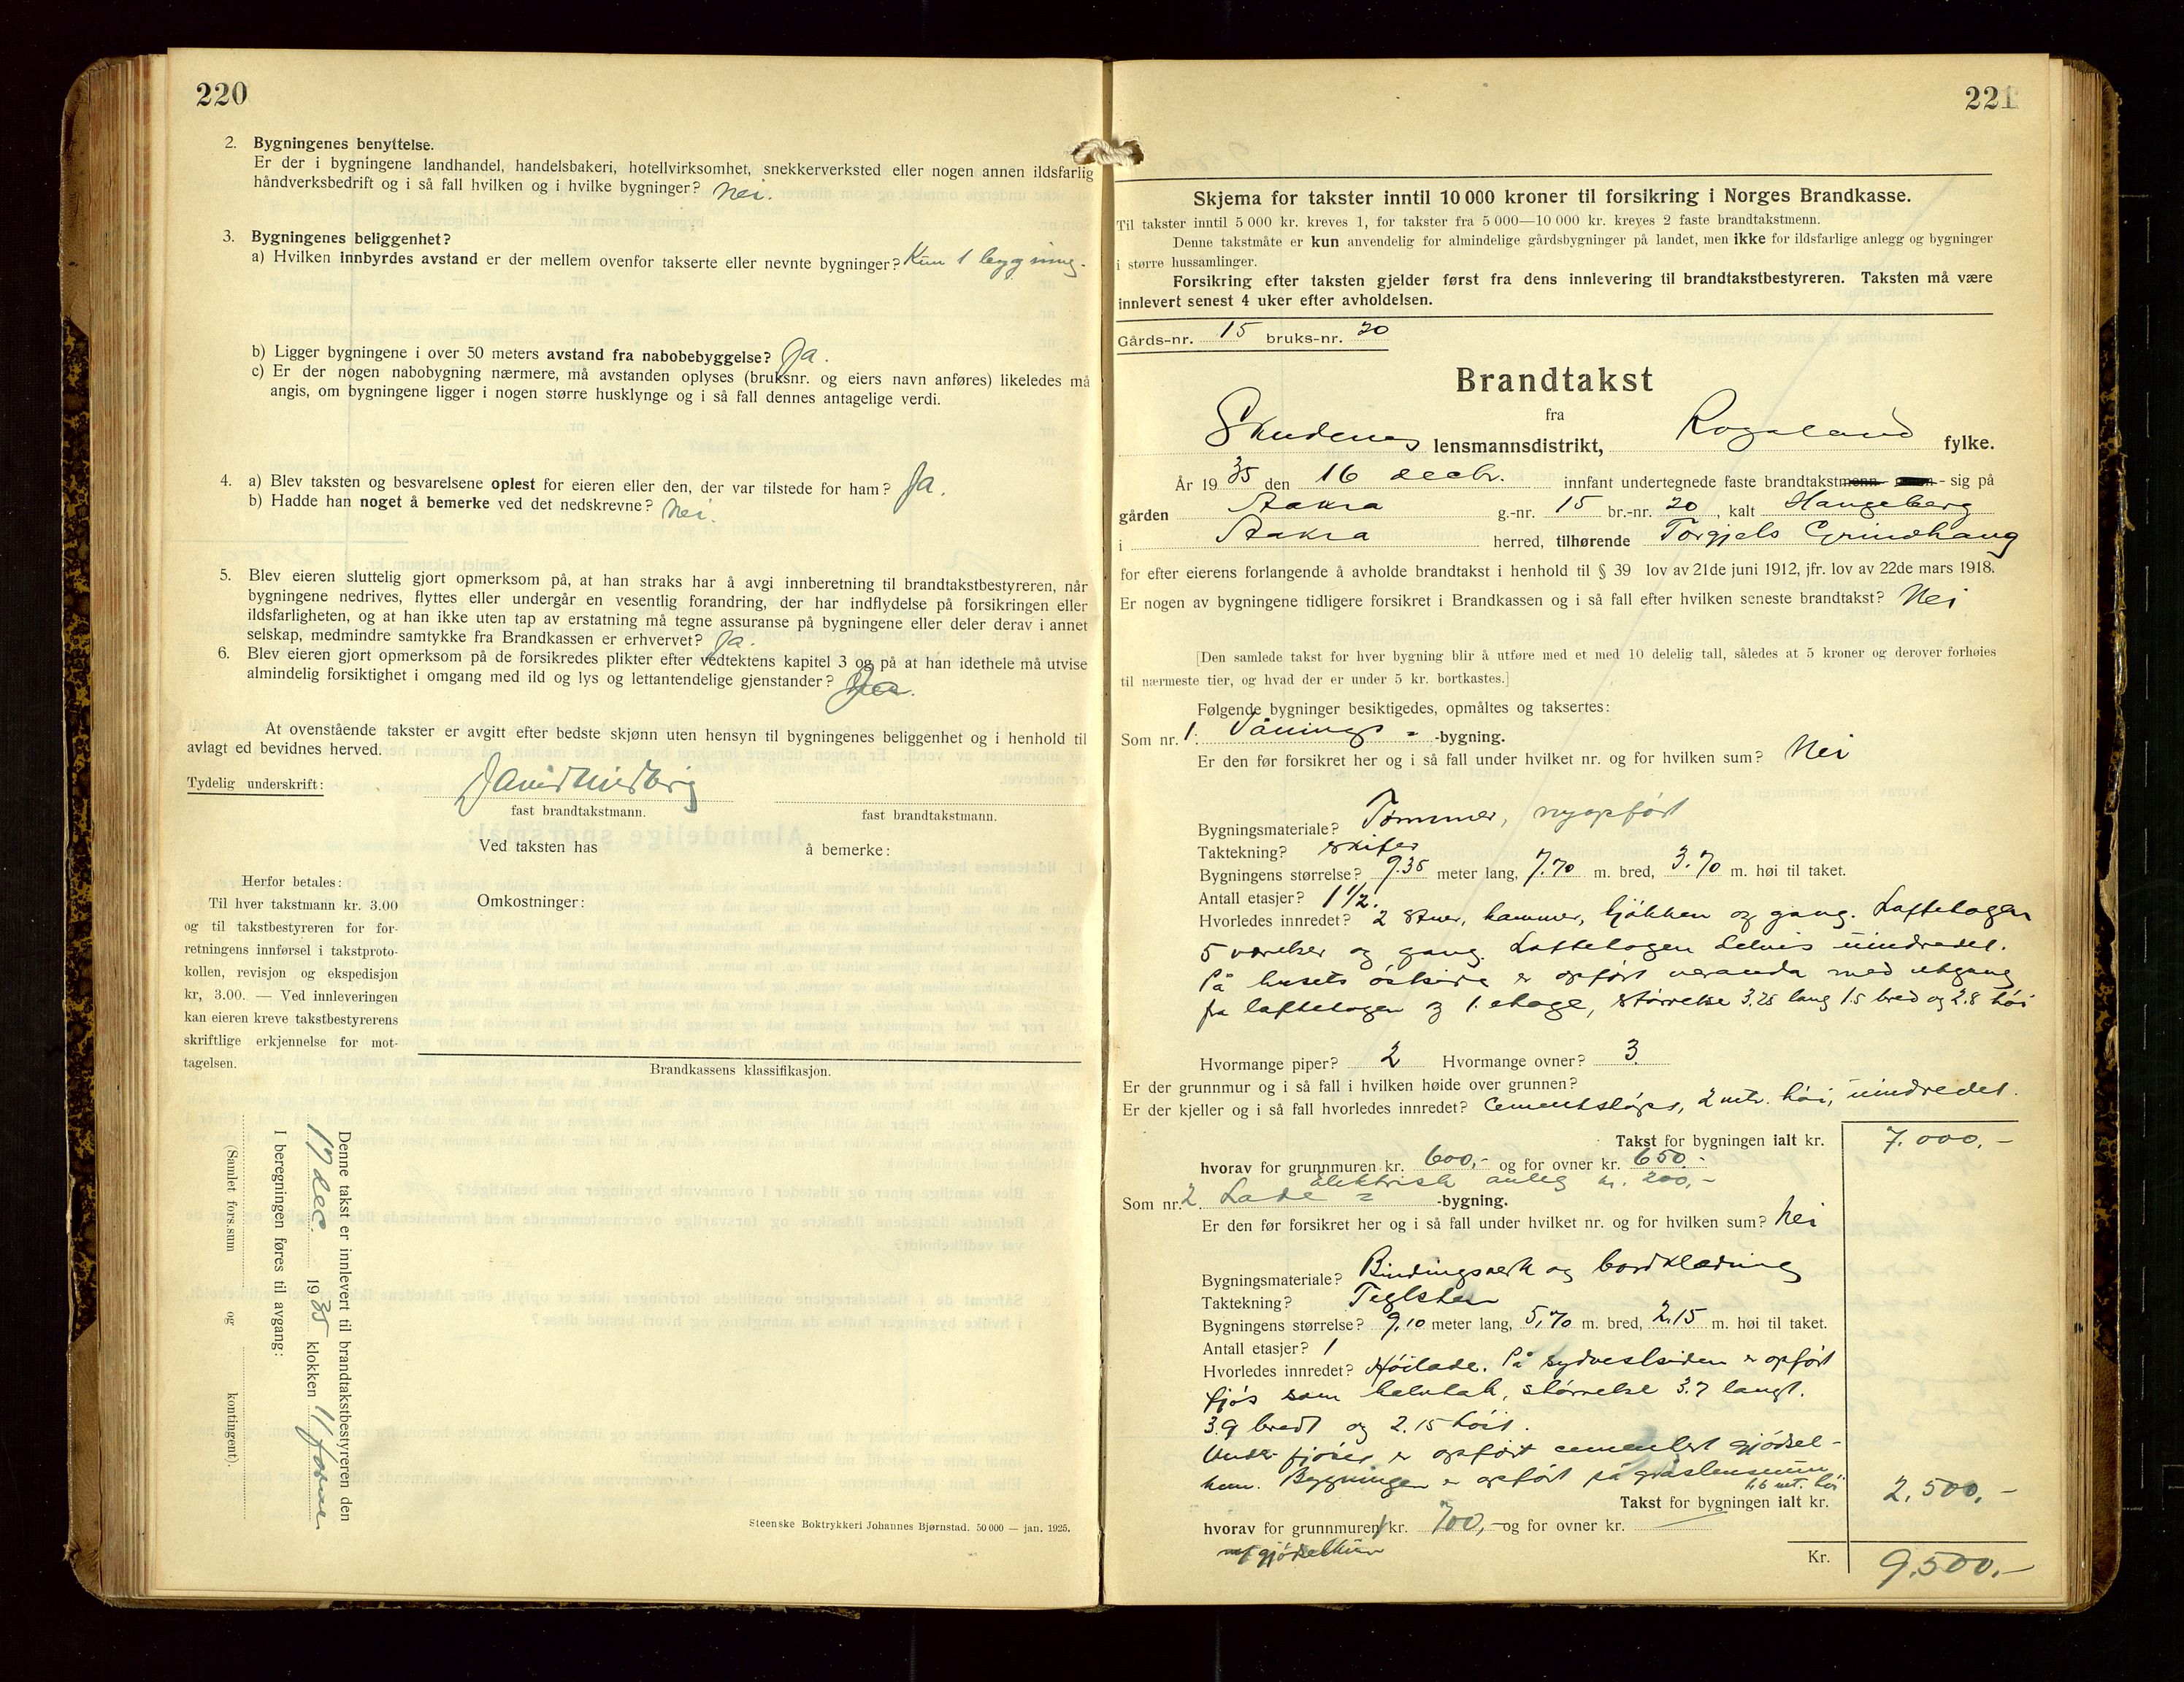 220
2. Bygningenes benyttelse.
Er der i bygningene landhandel, handelsbakeri, hotellvirksomhet, snekkerverksted eller nogen annen ildsfarlig
håndverksbedrift og i så fall hvilken og i hvilke bygninger? Nei.
3. Bygningenes beliggenhet?
a) Hvilken innbyrdes avstand er der mellem ovenfor takserte eller nevnte bygninger? Kun 1 bygning.
b) Ligger bygningene i over 50 meters avstand fra nabobebyggelse? Ja.
c) Er der nogen nabobygning nærmere, må avstanden oplyses (bruksnr. og eiers navn anføres) likeledes må
angis, om bygningene ligger i nogen større husklynge og i så fall dennes antagelige verdi.
4. a) Blev taksten og besvarelsene oplest for eieren eller den, der var tilstede for ham? Ja.
b) Hadde han noget å bemerke ved det nedskrevne? Nei.
5. Blev eieren sluttelig gjort opmerksom på, at han straks har å avgi innberetning til brandtakstbestyreren, når
bygningene nedrives, flyttes eller undergår en vesentlig forandring, der har indflydelse på forsikringen eller
ildsfarligheten, og at han ikke uten tap av erstatning må tegne assuranse på bygningene eller deler derav i annet
selskap, medmindre samtykke fra Brandkassen er erhvervet? Ja.
6. Blev eieren gjort opmerksom på de forsikredes plikter efter vedtektens kapitel 3 og på at han idethele må utvise
almindelig forsiktighet i omgang med ild og lys og lettantendelige gjenstander? Ja.
At ovenstående takster er avgitt efter bedste skjønn uten hensyn til bygningenes beliggenhet og i henhold til
avlagt ed bevidnes herved.
Tydelig underskrift:
fast brandtakstmann. fast brandtakstmann.
Ved taksten has å bemerke:
Herfor betales:
Til hver takstmann kr. 3.00
og til takstbestyreren for for-
retningens innførsel i takstproto-
kollen, revisjon og ekspedisjon
kr, 3.00. — Ved innleveringen
kan eieren kreve takstbestyrerens
skriftlige erkjennelse for mot-
tagelsen.
Omkostninger:
Brandkassens klassifikasjon.
Denne takst er innlevert til brandtakstbestyreren den
17 dec. 1935 klokken 11 formm
I beregningen føres til avgang:
(Samlet fors.sum og kontingent).
Steenske Boktrykkeri Johannes Bjørnstad. 50 000 — jan. 1925.
221
Skjema for takster inntil 10 000 kroner til forsikring i Norges Brandkasse.
Til takster inntil 5 000 kr. kreves 1, for takster fra 5 000—10 000 kr. kreves 2 faste brandtakstmenn.
Denne takstmåte er kun anvendelig for almindelige gårdsbygninger på landet, men ikke for ildsfarlige anlegg og bygninger
i større hussamlinger.
Forsikring efter taksten gjelder først fra dens innlevering til brandtakstbestyreren. Taksten må være
innlevert senest 4 uker efter avholdelsen.
Gårds-nr. 15 bruks-nr. 20
Brandtakst
fra
Skudenes lensmannsdistrikt, Rogaland fylke.
År 1935 den 16 decbr. innfant undertegnede faste brandtakstmenn sig på
gården Aakra g.-nr. 15 br.-nr. 20, kalt Haugeberg
i Aakra herred, tilhørende Torgjels Grindhaug
for efter eierens forlangende å avholde brandtakst i henhold til § 39 lov av 21de juni 1912, jfr. lov av 22de mars 1918.
Er nogen av bygningene tidligere forsikret i Brandkassen og i så fall efter hvilken seneste brandtakst? Nei
[Den samlede takst for hver bygning blir å utføre med et med 10 delelig tall, således at 5 kroner og derover forhøies
til nærmeste tier, og hvad der er under 5 kr. bortkastes.]
Følgende bygninger besiktigedes, opmåltes og taksertes:
Som nr. 1. Vånings = -bygning.
Er den før forsikret her og i så fall under hvilket nr. og for hvilken sum? Nei
Bygningsmateriale? Tømmer, nyopført
Taktekning? skifer
Bygningens størrelse? 9.35 meter lang, 7.70 m. bred, 3.70 m. høi til taket.
Antall etasjer? 1 1/2.
Hvorledes innredet? 2 stuer, kammer, kjøkken og gang. Loftetagen
5 værelser og gang. Loftetagen delvis uindredet.
På husets østside er opført veranda med utgang
fra loftetagen og 1. etage, størrelse 3.25 lang 1.5 bred og 2.8 høi
Hvormange piper? 2 Hvormange ovner? 3
Er der grunnmur og i så fall i hvilken høide over grunnen?
Er der kjeller og i så fall hvorledes innredet? Cementstøpt, 2 mtr. høi, uindredet.
Takst for bygningen ialt kr. 7.000,-
hvorav for grunnmuren kr. 600,- og for ovner kr. 650.-
Elektrisk anleg kr. 200,-
Som nr. 2 Lade = -bygning.
Er den før forsikret her og i så fall under hvilket nr. og for hvilken sum? Nei
Bygningsmateriale? Bindingsverk og bordklædning
Taktekning? Teglsten
Bygningens størrelse? 9,10 meter lang, 5,70 m. bred, 2,15 m. høi til taket.
Antall etasjer? 1
Hvorledes innredet? Høilade. På sydvestsiden er opført
fjøs som halvtak, størrelse 3.7 langt.
3.9 bredt og 2.15 høit.
Under fjøset er opført cementert gjødsel-
kum. Bygningen er opført på gråstensmur
1,6 mt. høi
Takst for bygningen ialt kr. 2,500,-
hvorav for grunnmuren kr. 700,- og for ovner kr.
m/ gjødselkum
Kr. 9,500.-